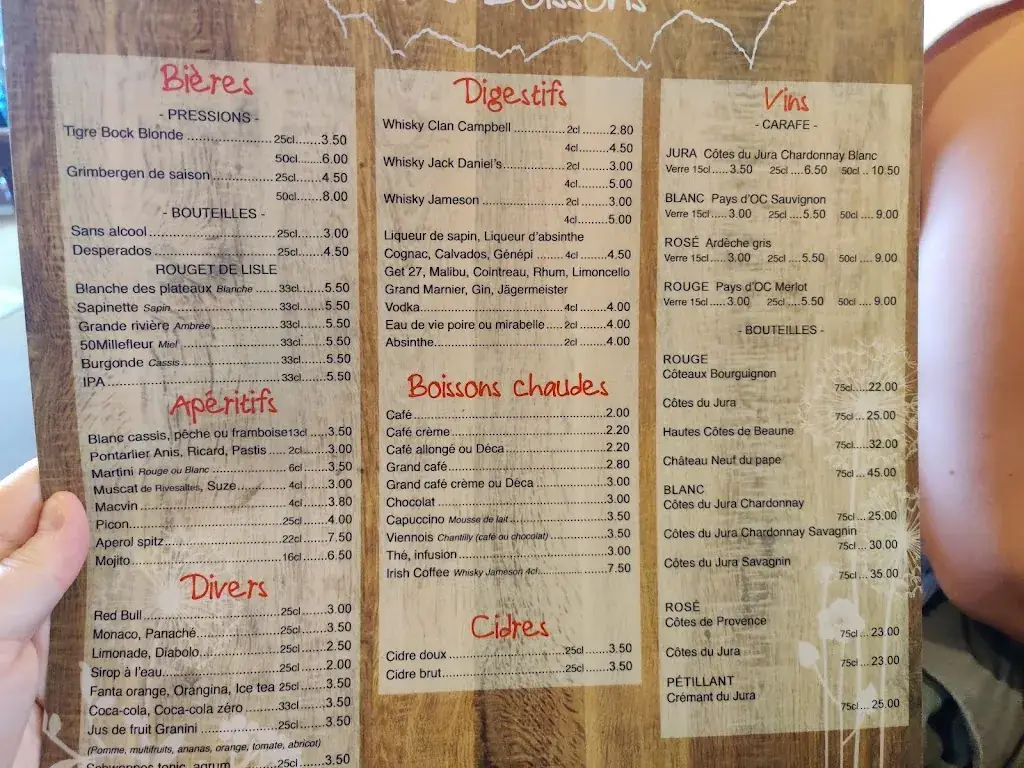 Boissons
Bières
- PRESSIONS -
Tigre Bock Blonde ........................ 25cl........3.50
50cl........6.00
Grimbergen de saison ................. 25cl........4.50
50cl........8.00
- BOUTEILLES -
Sans alcool .................................. 25cl........3.00
Desperados .................................. 25cl........4.50
ROUGET DE LISLE
Blanche des plateaux Blanche ...... 33cl.......5.50
Sapinette Sapin ............................. 33cl.......5.50
Grande rivière Ambrée .................. 33cl.......5.50
50Millefleur Miel ............................ 33cl.......5.50
Burgonde Cassis ........................... 33cl.......5.50
IPA ................................................ 33cl.......5.50
Apéritifs
Blanc cassis, pêche ou framboise 13cl .....3.50
Pontarlier Anis, Ricard, Pastis ..... 2cl........3.00
Martini Rouge ou Blanc ................. 6cl........3.50
Muscat de Rivesaltes, Suze ............ 4cl........3.00
Macvin .......................................... 4cl........3.80
Picon ............................................. 25cl.......4.00
Aperol spitz ................................... 22cl.......7.50
Mojito ............................................ 16cl.......6.50
Divers
Red Bull ........................................ 25cl.......3.00
Monaco, Panaché ......................... 25cl.......3.50
Limonade, Diabolo ........................ 25cl.......2.50
Sirop à l'eau .................................. 25cl.......2.00
Fanta orange, Orangina, Ice tea 25cl ....3.50
Coca-cola, Coca-cola zéro .......... 33cl.......3.50
Jus de fruit Granini ...................... 25cl.......3.50
(Pomme, multifruits, ananas, orange, tomate, abricot)
Schweppes tonic, agrum ............. 25cl.......3.50
Digestifs
Whisky Clan Campbell .............. 2cl ........2.80
4cl ........4.50
Whisky Jack Daniel's ................. 2cl ........3.00
4cl ........5.00
Whisky Jameson ....................... 2cl ........3.00
4cl ........5.00
Liqueur de sapin, Liqueur d'absinthe
Cognac, Calvados, Génépi ....... 4cl ........4.50
Get 27, Malibu, Cointreau, Rhum, Limoncello
Grand Marnier, Gin, Jägermeister
Vodka ......................................... 4cl ........4.00
Eau de vie poire ou mirabelle ..... 2cl ........4.00
Absinthe ..................................... 2cl ........4.00
Boissons chaudes
Café ........................................................2.00
Café crème .............................................2.20
Café allongé ou Déca .............................2.20
Grand café ..............................................2.80
Grand café crème ou Déca ....................3.00
Chocolat .................................................3.00
Capuccino Mousse de lait .......................3.50
Viennois Chantilly (café ou chocolat) ........3.50
Thé, infusion ...........................................3.00
Irish Coffee Whisky Jameson 4cl ..............7.50
Cidres
Cidre doux ................................. 25cl .......3.50
Cidre brut ................................... 25cl .......3.50
Vins
- CARAFE -
JURA Côtes du Jura Chardonnay Blanc
Verre 15cl ..... 3.50 25cl .... 6.50 50cl .. 10.50
BLANC Pays d'OC Sauvignon
Verre 15cl ..... 3.00 25cl .... 5.50 50cl .... 9.00
ROSÉ Ardèche gris
Verre 15cl ..... 3.00 25cl .... 5.50 50cl .... 9.00
ROUGE Pays d'OC Merlot
Verre 15cl ..... 3.00 25cl .... 5.50 50cl .... 9.00
- BOUTEILLES -
ROUGE
Côteaux Bourguignon
75cl .... 22.00
Côtes du Jura
75cl .... 25.00
Hautes Côtes de Beaune
75cl .... 32.00
Château Neuf du pape
75cl .... 45.00
BLANC
Côtes du Jura Chardonnay
75cl .... 25.00
Côtes du Jura Chardonnay Savagnin
75cl .... 30.00
Côtes du Jura Savagnin
75cl ... 35.00
ROSÉ
Côtes de Provence
75cl ... 23.00
Côtes du Jura
75cl ... 23.00
PÉTILLANT
Crémant du Jura
75cl ... 25.00